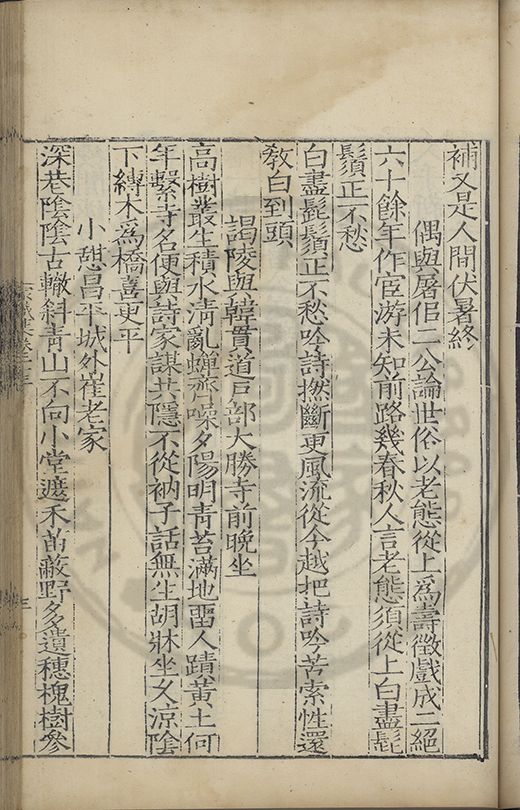 補又是人間伏暑終
偶與屠侶二公論世俗以老態從上爲壽徵戲成二絕
六十餘年作宦游未知前路幾春秋人言老態須從上白盡髭
鬚正不愁
白盡髭鬚正不愁吟詩撚斷更風流從今越把詩吟苦索性還
教白到頭
謁陵與韓貫道戸部大勝寺前晚坐
高樹叢生積水清亂蟬齊噪夕陽明青苔滿地畱人蹟黃土何
年繫寺名便與詩家謀共隱不從衲子話無生胡牀坐久涼陰
下縛木爲橋喜更平
小憇昌平城外崔老家
深巷陰陰古轍斜青山不向小堂遮禾苗蔽野多遺穗槐樹參